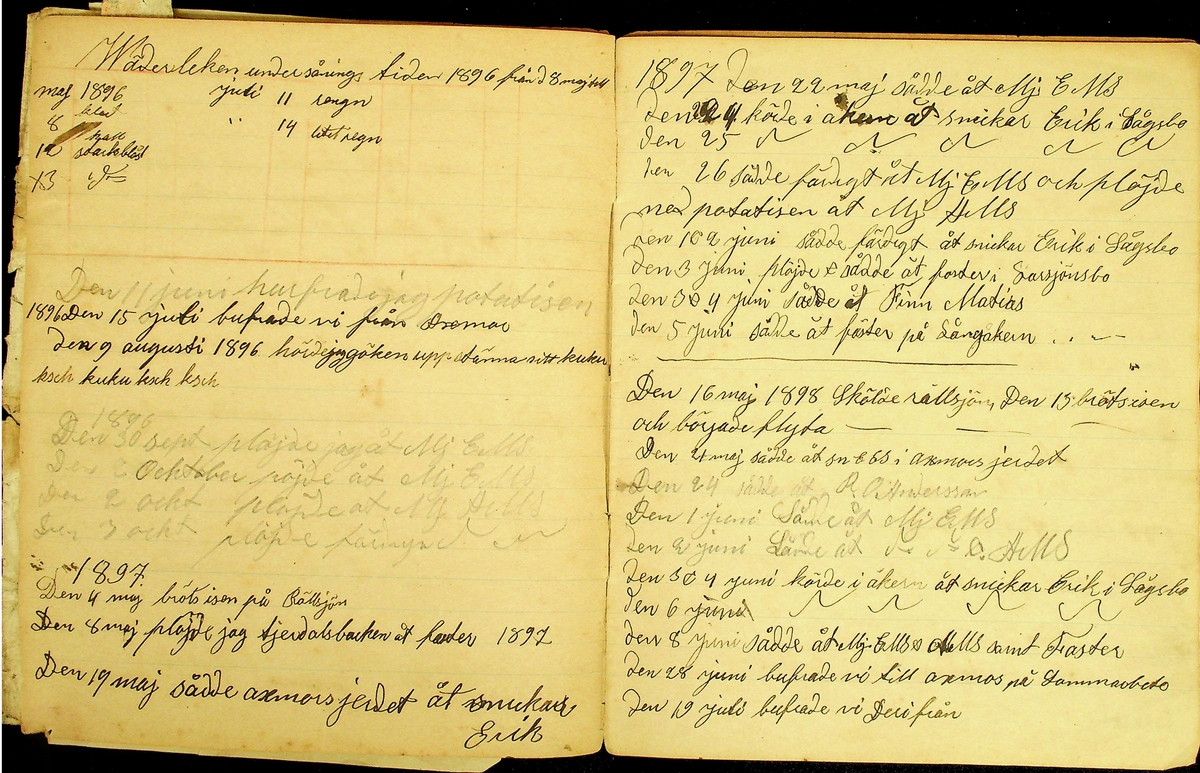 Wäderleken under såningstiden 1896 från d 8 maj till
maj 1896 juli 11 rengn
8 blåst " 14 litet regn
12 starkblåst
13 
Den 11 juni hurfvade jag potatisen
1896 Den 15 juli bufrade vi från axmor
den 9 augusti 1896 hörde jag göken upp atärna sitt kuku
ksch kuku ksch ksch
1896
Den 30 sept plöjde jag åt Mj EMS
Den 2 Ocktober pöjde åt Mj EMS
Den 2 ockt plöjde åt Mj AMS
Den 3 ockt plöjde färdigt
1897
Den 4 maj bröts isen på Rällsjön
Den 8 maj plöjde jag tjerdalsbacken åt faster 1897
Den 19 maj sådde axmorsjerdet åt snickar
Erik
1897 Den 22 maj sådde åt Mj EMS
Den 24 körde i åkern åt snickar Erik i Lågsbo
den 25
den 26 sådde färdigt åt Mj EMS och plöjde
ned potatisen åt Mj AMS
den 1 o 2 juni sådde färdigt åt snickar Erik i Lågsbo
Den 3 juni plöjde o sådde åt faster i Larsjönsbo
den 3 o 4 juni sådde åt Finn Matias
den 5 juni sådde åt faster på Långåkern
Den 16 maj 1898 Skölde rällsjön, Den 15 bröts isen
och började flyta
Den 21 maj sådde åt sn EGS i axmorsjerdet
Den 24 sådde åt P. O. Andersson
Den 1 juni Sådde åt Mj EMS
den 2 juni Sådde åt AMS
den 3 o 4 juni körde i åkern åt snickar Erik i Lågsbo
den 6 juni
den 8 juni sådde åt Mj EMS o AMS samt Faster
den 28 juni bufrade vi till axmor på Sommarbete
den 19 juli bufrade vi Derifrån